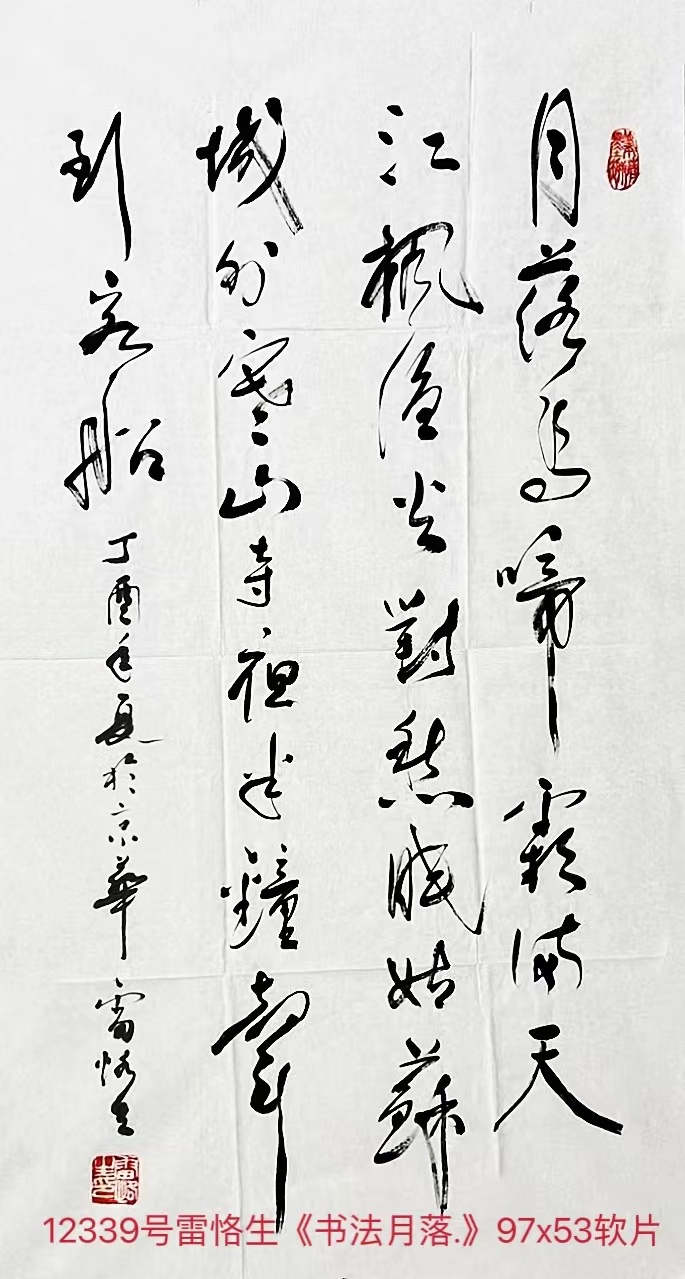 月落烏啼霜滿天
江楓漁火對愁眠姑蘇
城外寒山寺夜半鐘聲
到客船 丁酉年夏於京華 雷恪生
12339号雷恪生《书法月落.》97x53软片